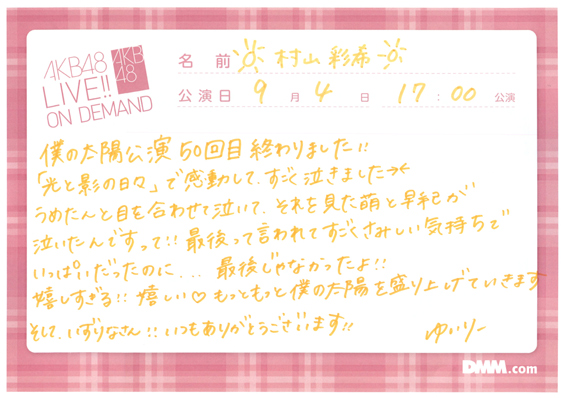 AKB48
LIVE!!
ON DEMAND
AKB
48
名前 村山 彩希
公演日 9月4日 17:00 公演
僕の太陽公演50回目終わりました!!
「光と影の日々」で感動して、すごく泣きました→←
うめたんと目を合わせて泣いて、それを見た萌と早紀が
泣いたんですって!! 最後って言われてすごくさみしい気持ちで
いっぱいだったのに... 最後じゃなかったよ!!
嬉しすぎる!! 嬉しい♡ もっともっと僕の太陽を盛り上げていきます
そして、いずりなさん!! いつもありがとうございます!!
ゆいりー
DMM.com